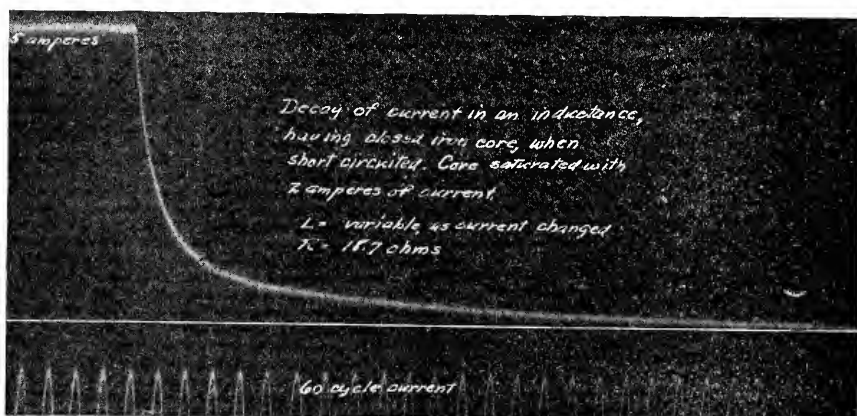 5 amperes
Decay of current in an inductance,
having closed iron core, when
short circuited. Core saturated with
2 amperes of current.
L = variable as current changed
R = 18.7 ohms
60 cycle current